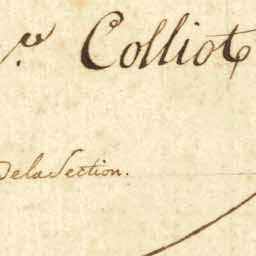 Colliot
de la Section.